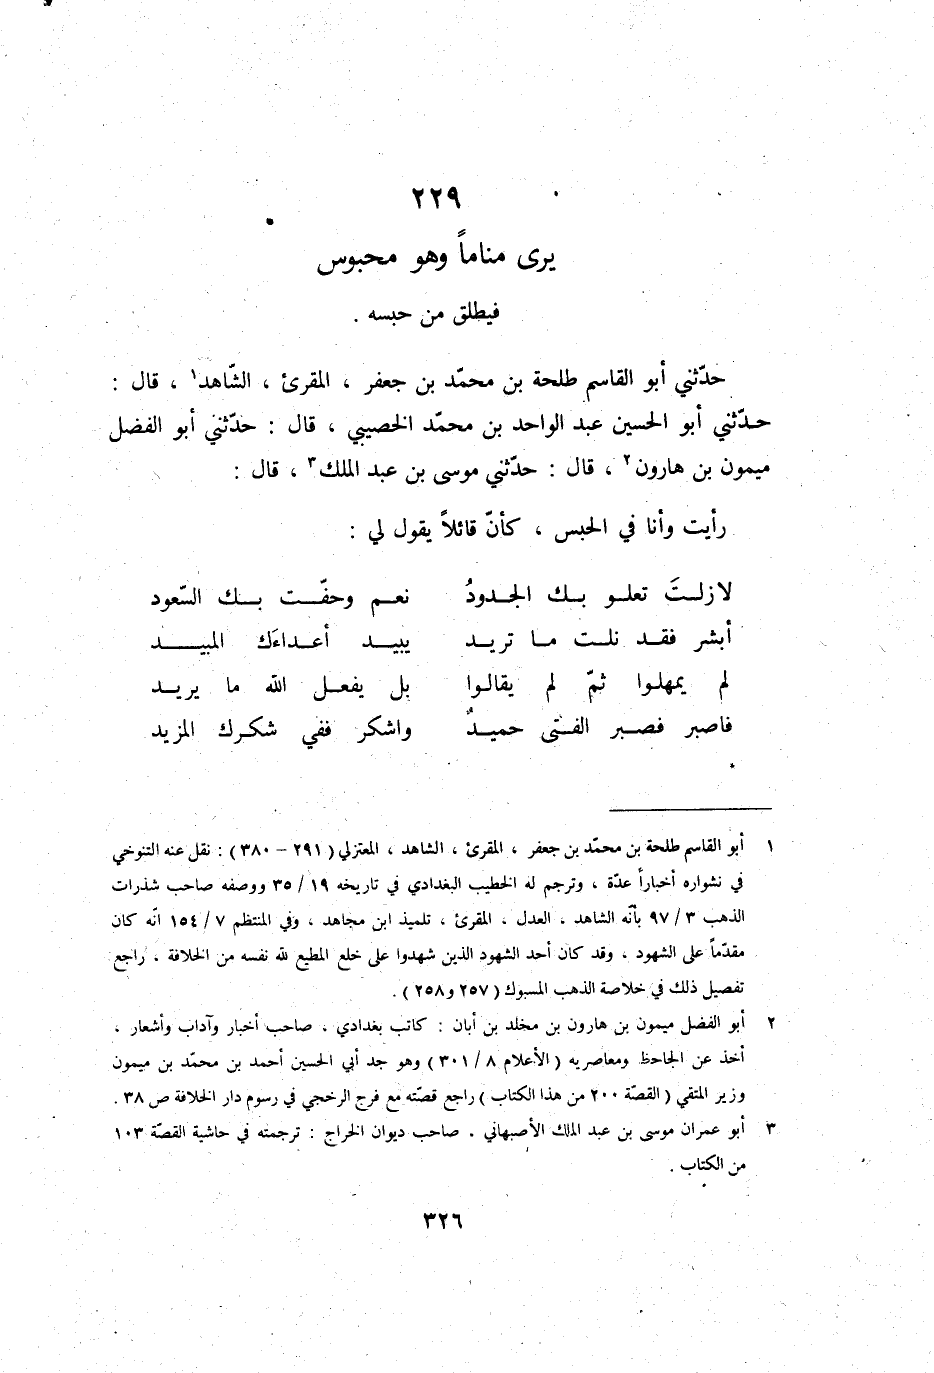 ٢٢٩
يرى مناماً وهو محبوس
فيطلق من حبسه .
حدّثني أبو القاسم طلحة بن محمّد بن جعفر ، المقرئ ، الشّاهد١ ، قال :
حدّثني أبو الحسين عبد الواحد بن محمّد الخصيبي ، قال : حدّثني أبو الفضل
ميمون بن هارون٢ ، قال : حدّثني موسى بن عبد الملك٣ ، قال :
رأيت وأنا في الحبس ، كأنّ قائلاً يقول لي :
لازلتَ تعلو بك الجدودُ نعم وحفّت بك السّعود
أبشر فقد نلت ما تريد يبيد أعداءَك المبيد
لم يمهلوا ثمّ لم يقالوا بل يفعل الله ما يريد
فاصبر فصبر الفتى حميدٌ واشكر ففي شكرك المزيد
١ أبو القاسم طلحة بن محمّد بن جعفر ، المقرئ ، الشاهد ، المعتزلي ( ٢٩١ - ٣٨٠ ) : نقل عنه التنوخي
في نشواره أخباراً عدّة ، وترجم له الخطيب البغدادي في تاريخه ١٩ / ٣٥ ووصفه صاحب شذرات
الذهب ٣ / ٩٧ بأنّه الشاهد ، العدل ، المقرئ ، تلميذ ابن مجاهد ، وفي المنتظم ٧ / ١٥٤ انّه كان
مقدّماً على الشهود ، وقد كان أحد الشهود الذين شهدوا على خلع المطيع لله نفسه من الخلافة ، راجع
تفصيل ذلك في خلاصة الذهب المسبوك ( ٢٥٧ و٢٥٨ ) .
٢ أبو الفضل ميمون بن هارون بن مخلد بن أبان : كاتب بغدادي ، صاحب أخبار وآداب وأشعار ،
أخذ عن الجاحظ ومعاصريه ( الأعلام ٨ / ٣٠١ ) وهو جد أبي الحسين أحمد بن محمّد بن ميمون
وزير المتقي ( القصّة ٢٠٠ من هذا الكتاب ) راجع قصّته مع فرج الرخجي في رسوم دار الخلافة ص ٣٨ .
٣ أبو عمران موسى بن عبد الملك الأصبهاني . صاحب ديوان الخراج : ترجمته في حاشية القصّة ١٠٣
من الكتاب .
٣٢٦